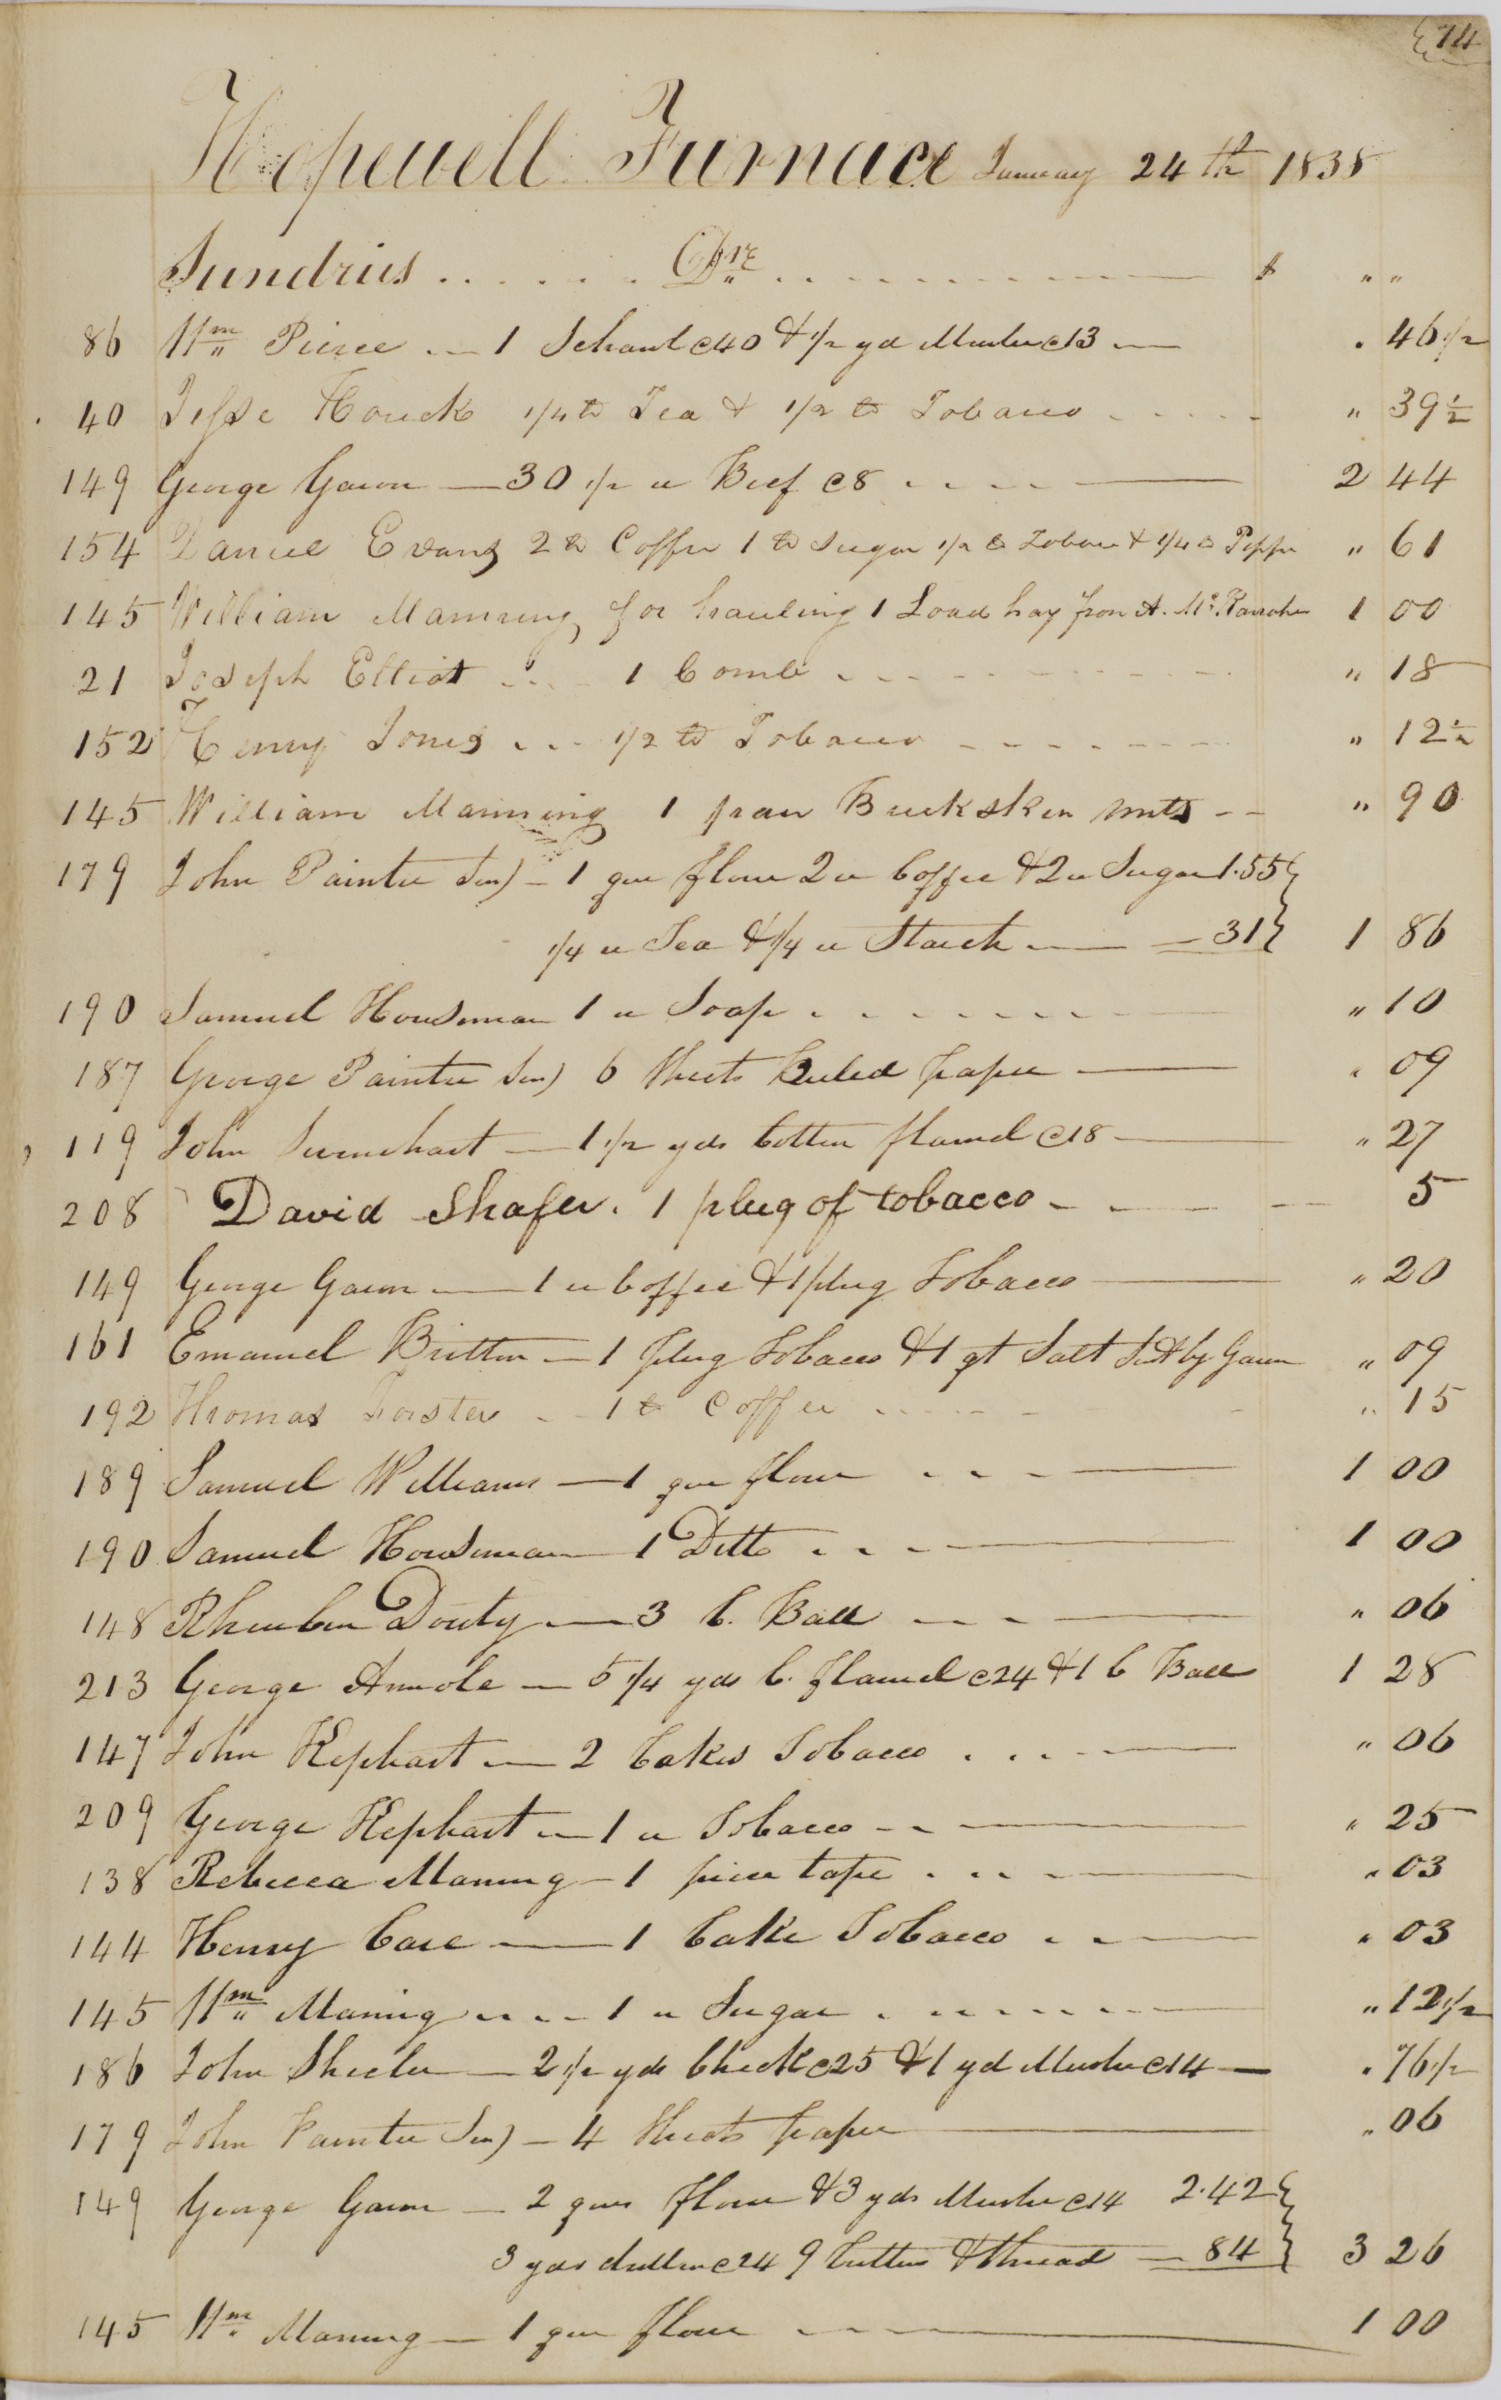 74
Hopewell Furnace January 24th 1838
Sundries . . . . . . Drs . . . . . . . . . $ " "
86 Wm Pierce — 1 Schaul c40 & 1/2 yd Muslin c13 — " 46 1/2
40 Jesse Houck 1/4 lb Tea & 1/2 lb Tobacco . . . . . " 39 1/2
149 George Gavon — 30 1/2 " Beef c8 . . . . — 2 44
154 Daniel Evans 2 lb Coffee 1 lb Sugar 1/2 lb Tobacco & 1/4 lb Pepper " 61
145 William Manning for hauling 1 Load hay from A. Mc 1 00
21 Joseph Elliot . . . 1 Comb . . . . . . . " 18
152 Henry Jones . . . 1/2 lb Tobacco . . . . . . " 12 1/2
145 William Manning 1 pair Buckskin mits - - " 90
179 John Painter Sen) — 1 qur flour 2 " Coffee & 2 " Sugar 1.55
1/4 " Tea & 1/4 " Starch — 31 1 86
190 Samuel Houseman 1 " Soap . . . . . . . — " 10
187 George Painter Sen) 6 Sheets Ruled paper — " 09
119 John Swinehart — 1 1/2 yds Cotton flannel c18 — " 27
208 David Shafer. 1 plug of tobacco - - — 5
149 George Gavon — 1 " Coffee & 1 plug Tobacco — " 20
161 Emanuel Britton — 1 plug Tobacco & 1 qt Salt Sent by Gavon " 09
192 Thomas Forster . . 1 lb Coffee . . . . . " 15
189 Samuel Williams — 1 qur flour . . . — 1 00
190 Samuel Houseman 1 Ditto . . . — 1 00
148 Rheuben Douty — 3 C. Ball . . — " 06
213 George Amole — 5 1/4 yds C. flannel c24 & 1 C Ball 1 28
147 John Kephart — 2 Cakes Tobacco . . . — " 06
209 George Kephart — 1 " Tobacco - - — " 25
138 Rebecca Maning — 1 piece tape . . . — " 03
144 Henry Care — 1 Cake Tobacco . . — " 03
145 Wm Maning . . . 1 " Sugar . . . . . . — " 12 1/2
186 John Sheeler — 2 1/2 yds Check c25 & 1 yd Muslin c14 — " 76 1/2
179 John Painter Sen) — 4 Sheets paper — " 06
149 George Gavon — 2 qurs flour & 3 yds Muslin c14 2.42
3 yds drillin c24 9 buttons & thread — 84 3 26
145 Wm Maning — 1 qur flour . . . — 1 00